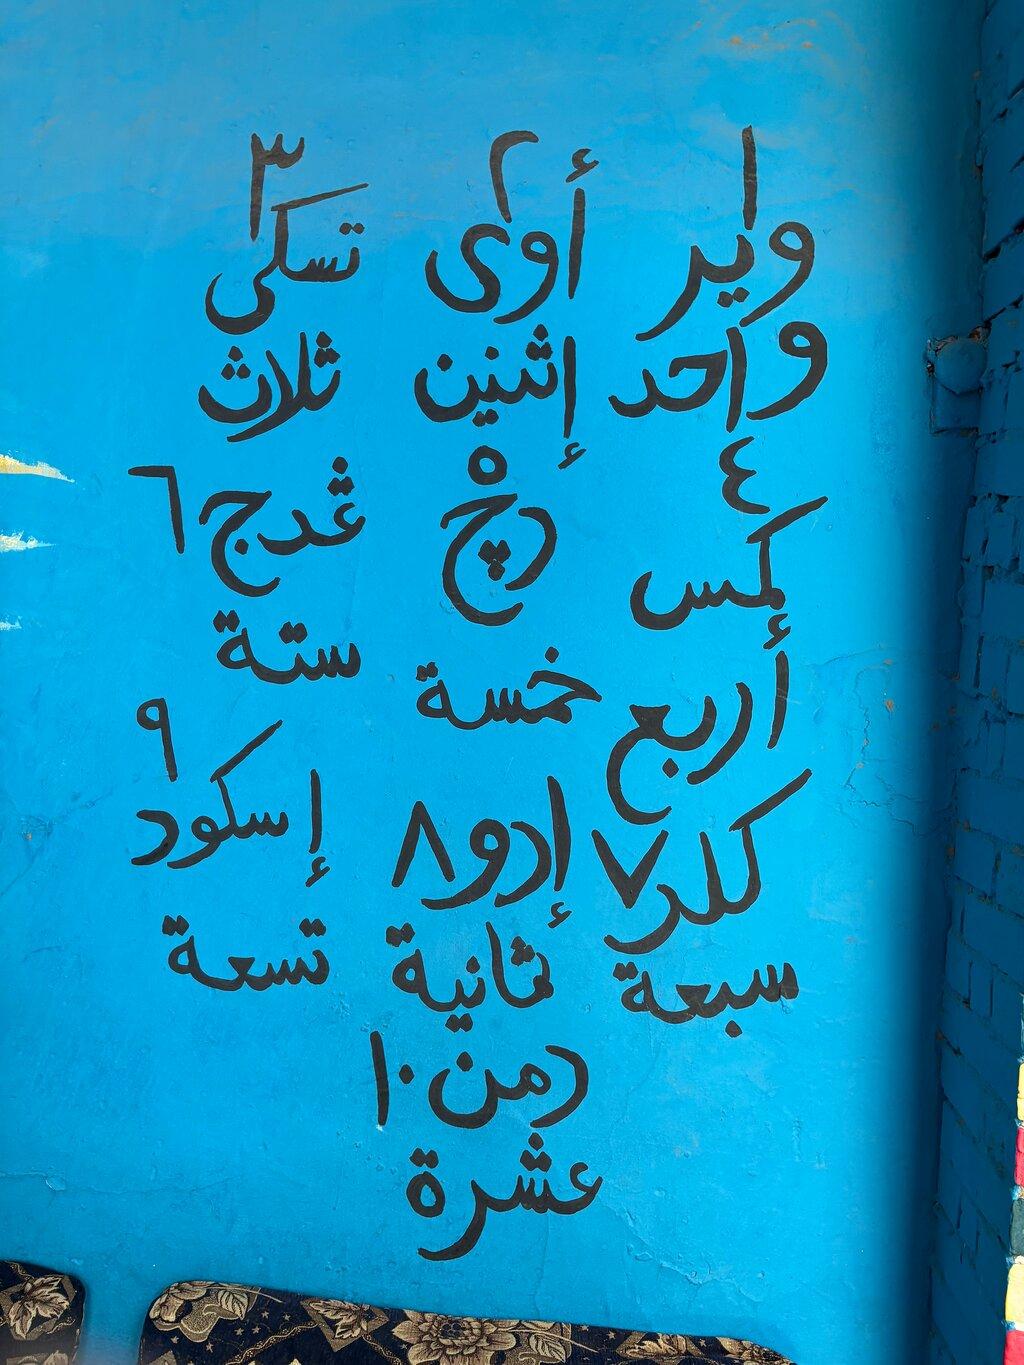 ١ ٢ ٣
واير أوى تسكى
واحد إثنين ثلاث
٤ ٥ ٦
كمس دڿ ڠدج
أربع خمسة ستة
٧ ٨ ٩
كلد إدو إسكود
سبعة ثمانية تسعة
دمن ١٠
عشرة